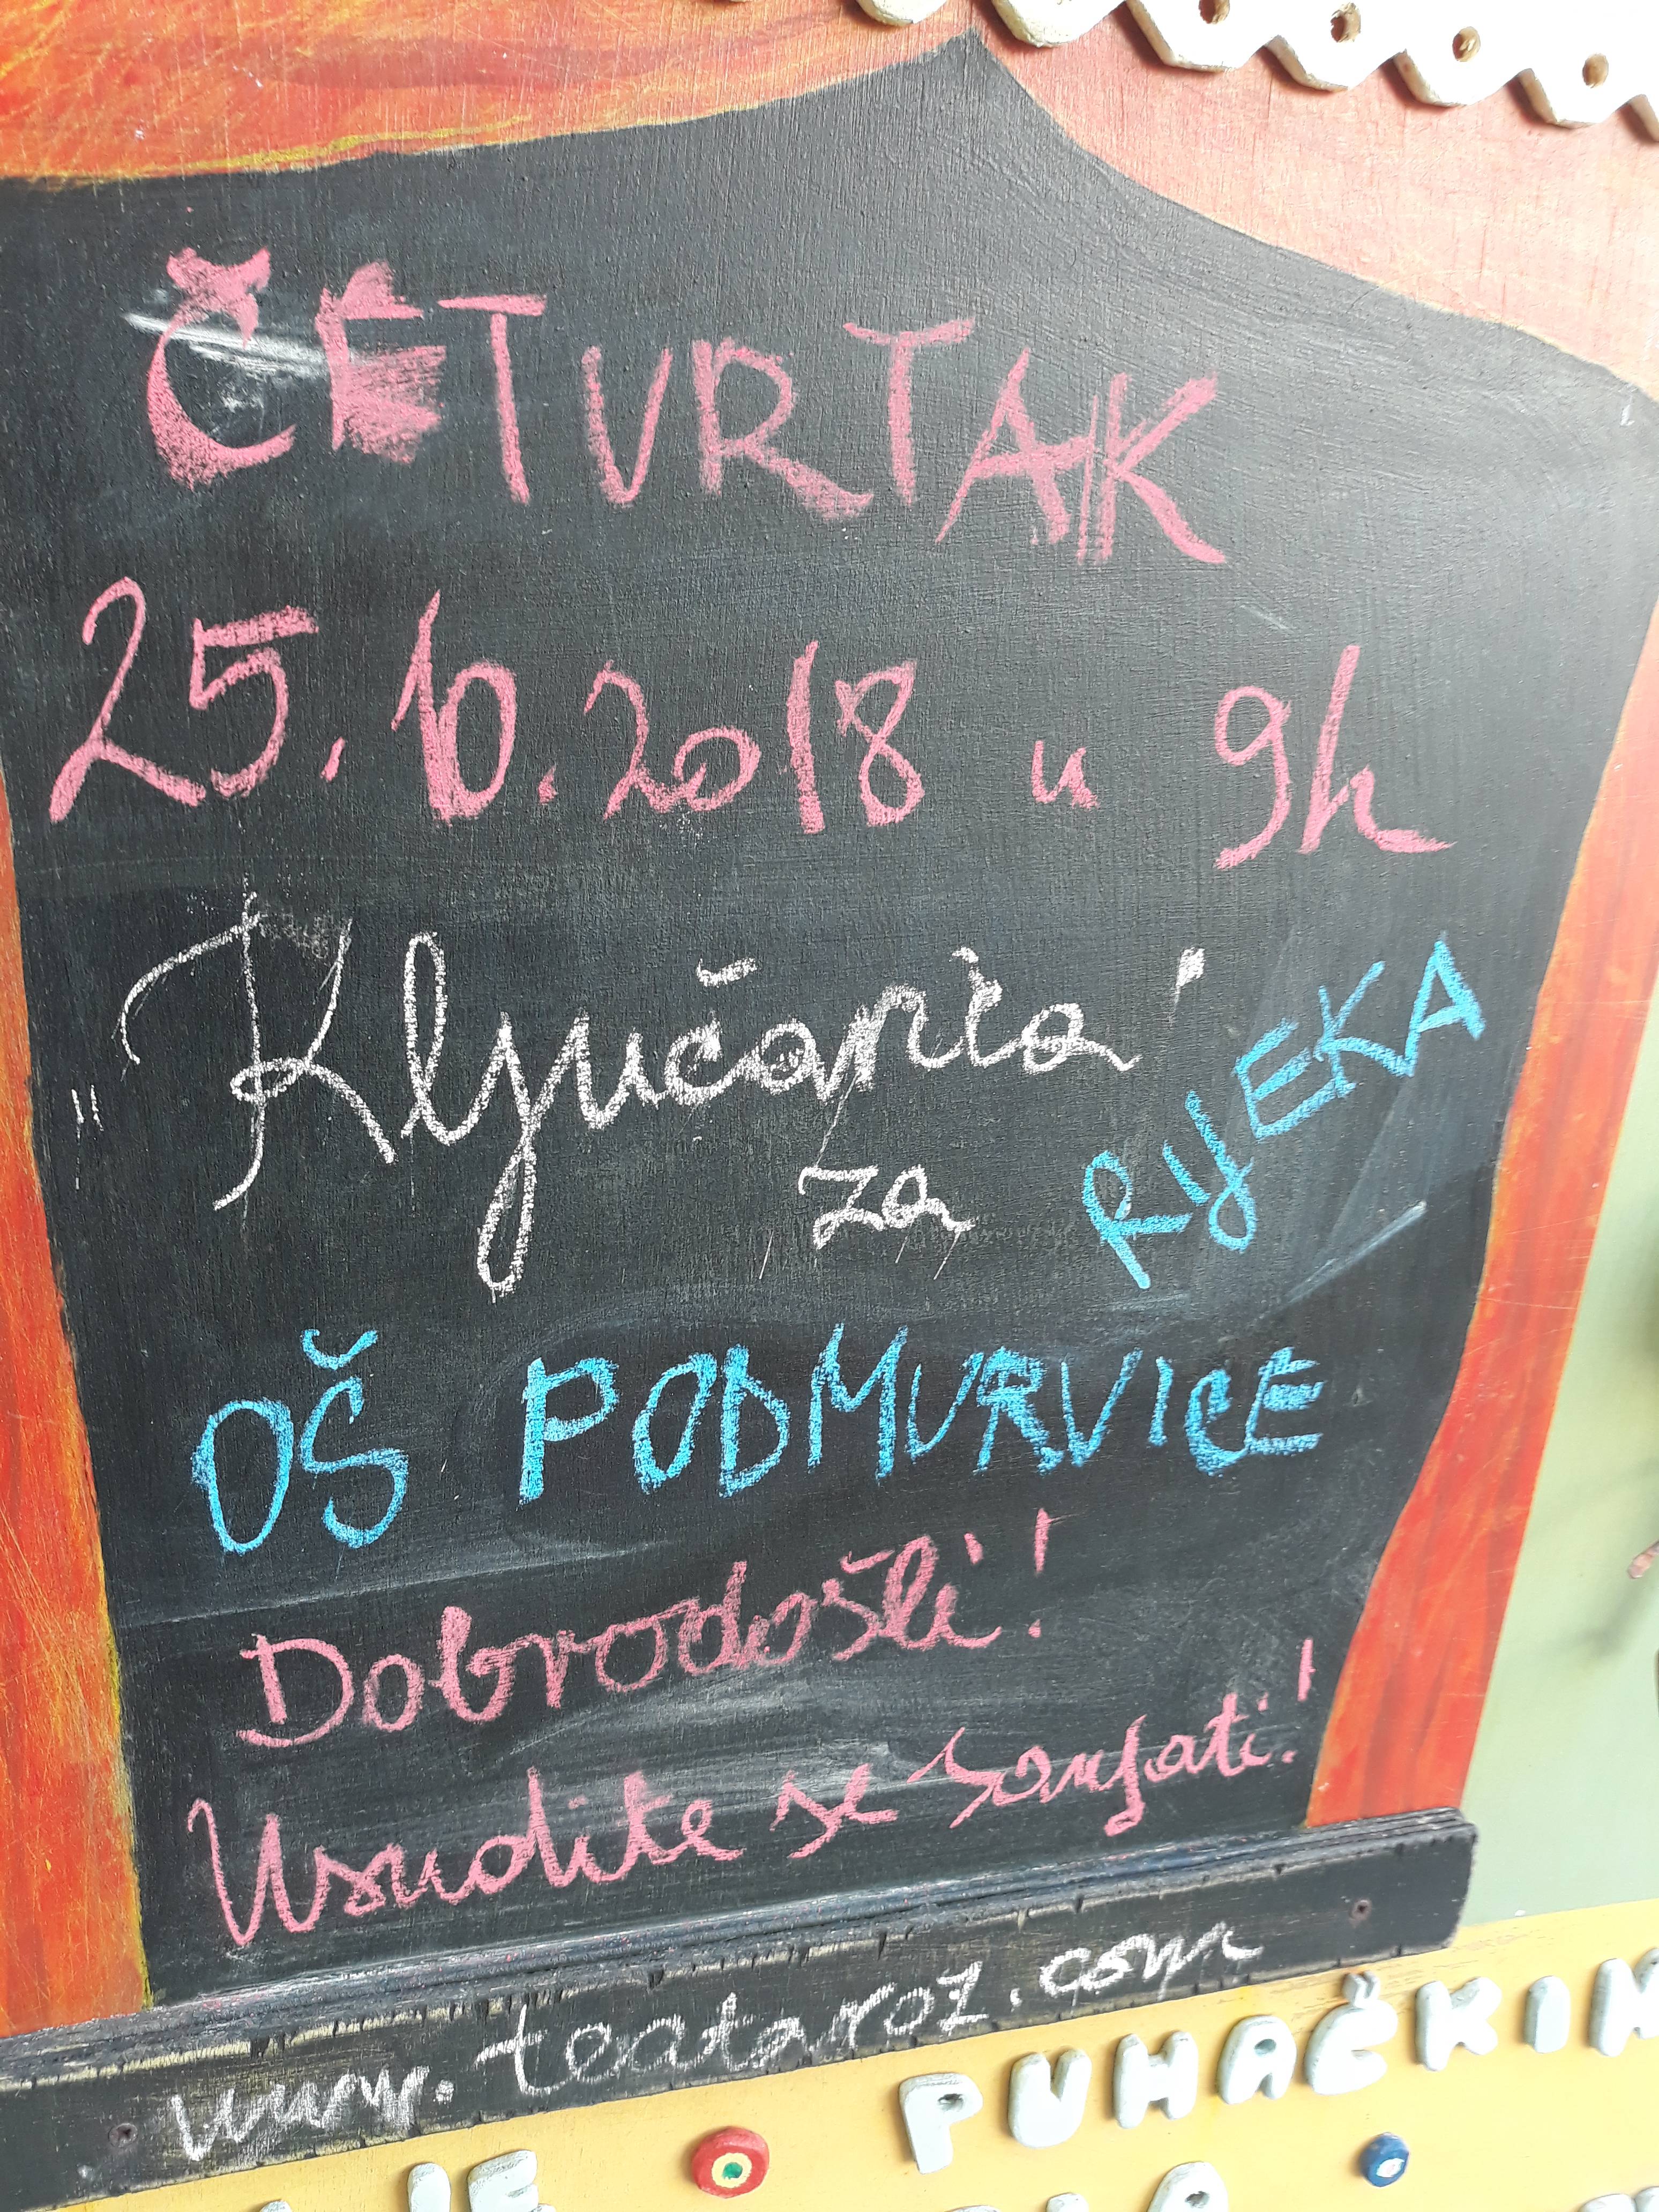 ČETVRTAK
25.10.2018 u 9h
"Ključanica"
za RIJEKA
OŠ PODMURVICE
Dobrodošli!
Usudite se sanjati!
www.teataroz.com
PUHAČKIM
JE